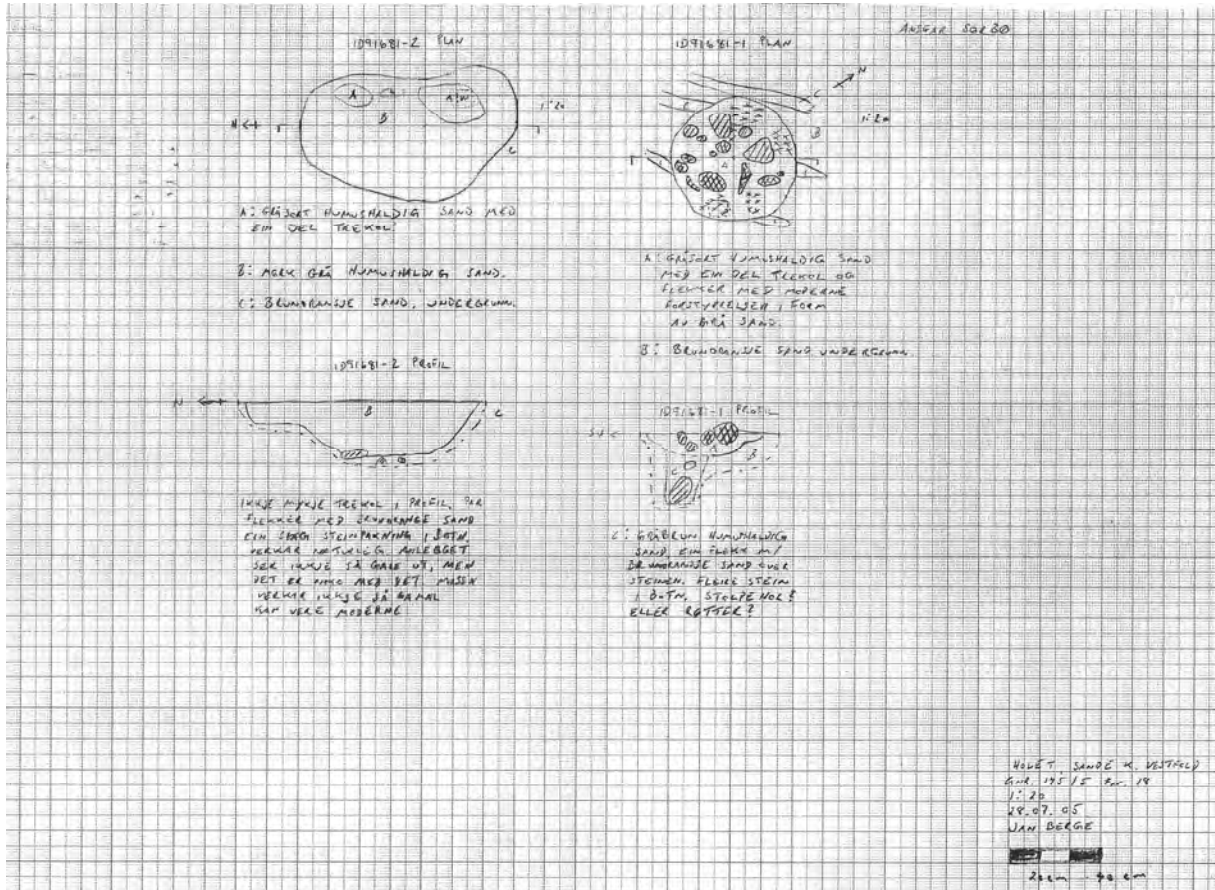 ANSGAR SØRBØ
ID91681-2 PLAN
A
A
B
N
C
1:20
A: GRÅSORT HUMUSHALDIG SAND MED
EIN DEL TREKOL.
B: MØRK GRÅ HUMUSHALDIG SAND.
C: BRUNORANSJE SAND, UNDERGRUNN.
ID91681-2 PROFIL
N
B
C
IKKJE MYKJE TREKOL I PROFIL, PAR
FLEKKER MED BRUNORANGE SAND
EIN STEINPAKNING I BOTN,
VERKAR NATURLEG. ANLEGGET
SER IKKJE SÅ GALE UT, MEN
DET ER NOKO MED DET. MASSEN
VERKAR IKKJE SÅ GAMAL
KAN VERE MODERNE
ID91681-1 PLAN
N
C
B
A
1:20
A: GRÅSORT HUMUSHALDIG SAND
MED EIN DEL TREKOL OG
FLEKKER MED MODERNE
FORSTYRRELSER I FORM
AV GRÅ SAND.
B: BRUNORANSJE SAND UNDERGRUNN.
ID91681-1 PROFIL
SV
B
C
C: GRÅBRUN HUMUSHALDIG
SAND, EIN FLEKK M/
BRUNORANSJE SAND OVER
STEINEN. FLEIRE STEIN
I BOTN. STOLPEHOL?
ELLER RØTTER?
HOLET, SANDE K. VESTFOLD
GNR. 145/5
1:20
28.07.05
JAN BERGE
20 cm 40 cm